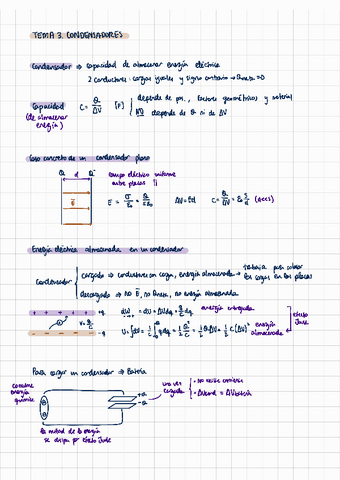 TEMA 3. CONDENSADORES
Condensador → Capacidad de almacenar energía eléctrica
2 conductores: cargas iguales y signo contrario → Qneta = 0
Capacidad C = Q/ΔV [F]
(de almacenar energía)
depende de pos., factores geométricos y material
NO depende de Q ni de ΔV
Caso concreto de un condensador plano
Q d Q⁻
E
Campo eléctrico uniforme
entre placas
E = σ/ε₀ = Q/Sε₀ ΔV = Ed C = Q/ΔV = ε₀ S/d
Energía eléctrica almacenada en un condensador
Condensador
cargado → conductores con carga, energía almacenada → trabajo para colocar
las cargas en las placas
descargado → no E, no Qneta, no energía almacenada
+ + + + + + +q
V = q/C
- - - - - - -q
dW = dU = ΔVdq = q/C dq energía entregada
U = ∫dU = 1/C ∫q dq = 1/2 Q²/C = 1/2 QΔV = 1/2 C(ΔV)² energía
almacenada
Efecto
Joule
Para cargar un condensador → Batería
consume
energía
química
+Q
-Q
una vez
cargado
- no recibe corriente
- ΔVcond = ΔVbatería
la mitad de la energía
se disipa por efecto Joule